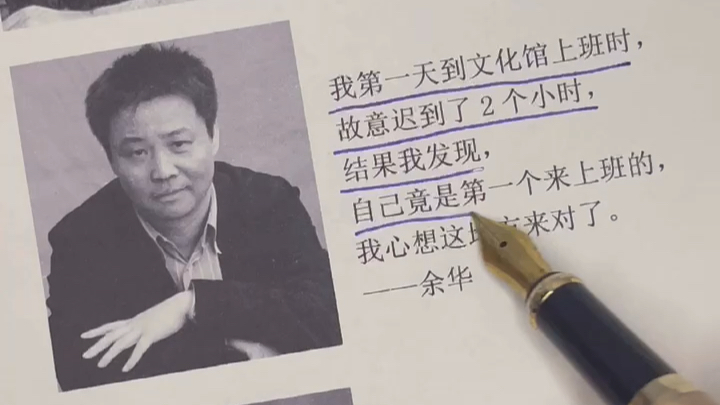 我第一天到文化馆上班时，
故意迟到了2个小时，
结果我发现，
自己竟是第一个来上班的，
我心想这地方来对了。
——余华